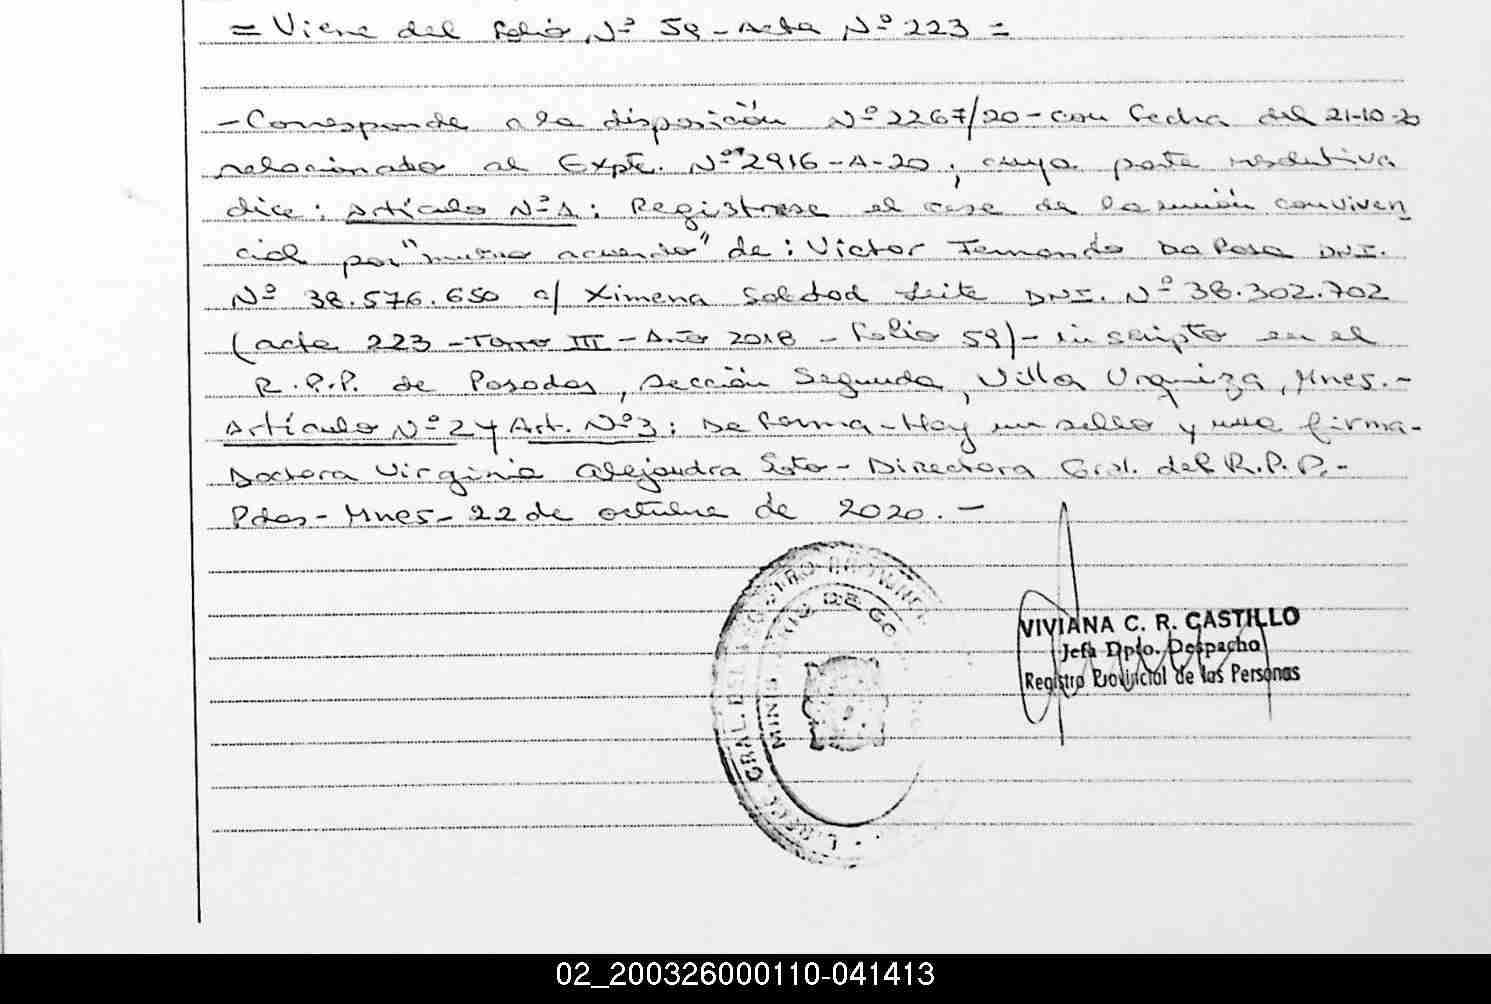 = Viene del folio Nº 59 - Acta Nº 223 =
- Corresponde a la disposición Nº 2267/20 - con fecha del 21-10-20
relacionado al Expte. Nº 2916-A-20, cuya parte resolutiva
dice: Artículo Nº 1: Registrese el cese de la unión conviven
cial por "mutuo acuerdo" de: Victor Fernando Da Rosa DNI.
Nº 38.576.650 c/ Ximena Soledad Leite DNI. Nº 38.302.702
(acta 223 - Tomo III - Año 2018 - folio 59) - inscripto en el
R.P.P. de Posadas, sección Segunda, Villa Urquiza, Mnes.-
Artículo Nº 2 y Art. Nº 3: De forma - Hay un sello y una firma -
Doctora Virginia Alejandra Soto - Directora Gral. del R.P.P. -
Pdas - Mnes - 22 de octubre de 2020. -
GRAL. DEL REGISTRO PROVINCI
MINISTERIO DE GO
VIVIANA C. R. CASTILLO
Jefa Dpto. Despacho
Registro Provincial de las Personas
02_200326000110-041413